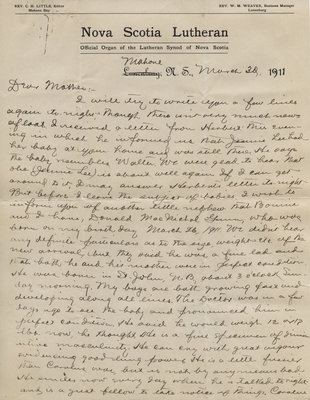 REV. C. H. LITTLE, Editor
Mahone Bay
REV. W. M. WEAVER, Business Manager
Lunenburg
Nova Scotia Lutheran
Official Organ of the Lutheran Synod of Nova Scotia
Mahone
Lunenburg, N. S., March 28, 1911
Dear Mother:-
I will try to write you a few lines
again to-night though there isn't very much news
afloat. I received a letter from Herbert this even-
ing in which he informs us that Jennie had
her baby at your home and was still there. He says
the baby resembles Walter. We were glad to hear that
she (Jennie Lee) is about well again. If I can get
around to it I may answer Herbert's letter to-night
But before I leave the subject of babies I want to
inform you of another little nephew that Bonnie
and I have, Donald MacNichol, who was
born on my birthday March 26, 1911. We didn't hear
any definite particulars as to the size, weight etc. of the
new arrival, but they said he was a fine lad and
that both he and his mother were in perfect condition
He was born in St John, N.B. about 3 o'clock Sun-
day morning. My boys are both growing fast and
developing along all lines. The Doctor was in a few
days ago to see the baby and pronounced him in
perfect condition. He said he would weigh 12 or 17
lbs. now. He thought he is a fine specimen of diminu-
itive masculinity. He can cry with great vigour
evidencing good lung power. He is a little fussier
than Carolus was, but is not by any means bad.
He smiles now every day when he is talked to right
and is a great fellow to take notice of things. Carolus